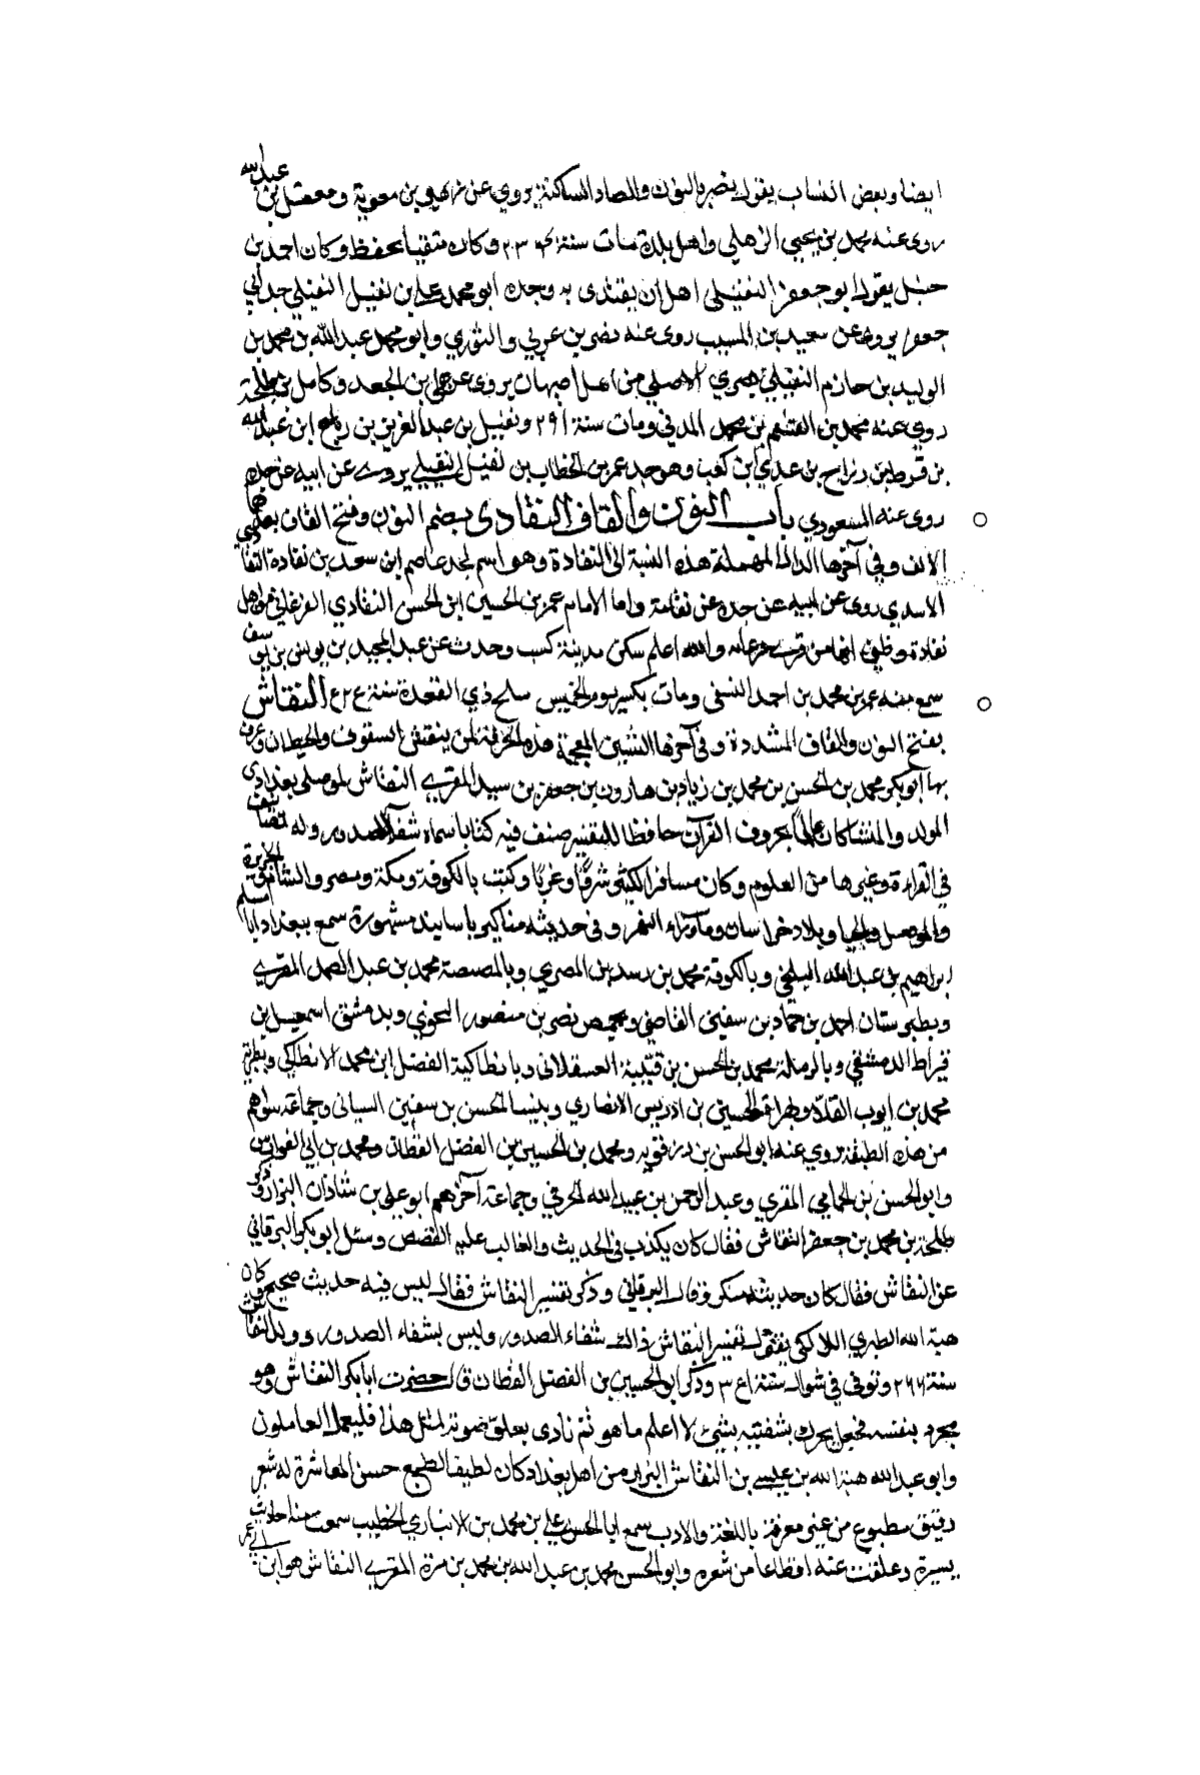 ايضا وبعض النساب يقول نضر بالنون والصاد الساكنة يروي عن زهير بن معوية ومعقل بن عبدالله
روى عنه محمد بن يحيى الذهلي واهل بلده مات سنة ٢٣٤ وكان متقيا يحفظ وكان احمد بن
حنبل يقول ابو جعفر النفيلي اهل ان يقتدى به وجده ابو محمد علي بن نفيل النفيلي جد ابي
جعفر يروى عن سعيد بن المسيب روى عنه نضر بن عربي والثوري وابو محمد عبد الله بن محمد بن
الوليد بن حازم النفيلي بصري الاصلي من اهل اصبهان يروى عن علي بن الجعد وكامل بن طلحة
روى عنه محمد بن القسم بن محمد المدني ومات سنة ٢٩١ ونفيل بن عبد العزيز بن رياح ابن عبدالله
بن قرط ابن رزاح بن عدي ابن كعب وهو جد عمر بن الخطاب بن نفيل النفيلي يروى عن ابيه عن جده
روى عنه المسعودي باب النون والقاف النقادى بضم النون وفتح القاف بعدهما
الالف وفي آخرها الدال المهملة هذه النسبة الى النقادة وهو اسم لجد عاصم ابن سعد بن نقادة النقادي
الاسدي روى عن ابيه عن جده عن نقادة واما الامام عمر بن الحسين ابن الحسن النقادي الفرغاني من اهل
نقادة وظني انها من قرى فرغانه والله اعلم سكن مدينة كسب وحدث عن عبد المجيد بن يونس بن يوسف
سمع منه عمر بن محمد بن احمد النسفي ومات بكس يوم الخميس سلخ ذي القعدة سنة النقاش
بفتح النون والقاف المشددة وفي آخرها الشين المعجمة هذه الحرفة لمن ينقش السقوف والحيطان وعرف
بها ابو بكر محمد بن الحسن بن محمد بن زياد بن هارون بن جعفر بن سيد المقري النقاش الموصلي بغدادي
المولد والمنشا كان عالما بحروف القرآن حافظا للتفسير صنف فيه كتابا سماه شفآ الصدور وله تصانيف
في القراءة وغيرها من العلوم وكان مسافر الكثير شرقا وغربا وكتب بالكوفة ومكة ومصر والشام والجزيرة
والموصل والجبال وبلاد خراسان وما وراء النهر وفي حديثه مناكير باسانيد مشهورة سمع ببغداد ابا مسلم
ابراهيم بن عبد الله البلخي وبالكوفة محمد بن المصري وبالمصيصة محمد بن عبد الصمد المقري
وبطبرستان احمد بن حماد بن سفين القاضي وبحمص نصر بن منصور النحوي وبدمشق اسمعيل بن
قيراط الدمشقي وبالرملة محمد بن الحسن بن قتيبة العسقلاني وبانطاكية الفضل ابن محمد الانطاكي وبطبرية
محمد بن ايوب وبهراة الحسين بن ادريس الانصاري وبنسا الحسن بن سفين وجماعة سواهم
من هذه الطبقة روى عنه ابو الحسن بن رزقويه ومحمد بن الحسين بن الفضل القطان ومحمد بن ابي الفوارس
وابو الحسن بن الحمامي المقري وعبد الرحمن بن عبيد الله الحرفي وجماعة آخرهم ابو علي بن شاذان البزاز وذكر
طلحة بن محمد بن جعفر النقاش فقال كان يكذب في الحديث والغالب عليه القصص وسئل ابو بكر البرقاني
عن النقاش فقال كان حديثه منكر وقال البرقاني وذكر تفسير النقاش فقال ليس فيه حديث صحيح وكان
هبة الله الطبري اللالكي يقول تفسير النقاش ذالك شفاء الصدور وليس بشفاء الصدور وولد النقاش
سنة ٢٦٦ وتوفي في شوال سنة وذكر ابو الحسين بن الفضل القطان قال حضرت ابا بكر النقاش وهو
يجود بنفسه فجعل يحرك بشفتيه بشئ لا اعلم ما هو ثم نادى بعلو صوته لمثل هذا فليعمل العاملون
وابو عبد الله هبة الله بن عيسى بن النقاش البزاز من اهل بغداد كان لطيف الطبع حسن المعاشرة له شعر
دقيق مطبوع من غير معرفة باللغة والادب سمع ابا الحسن علي بن محمد بن الانباري الخطيب سمعت منه احاديث
يسيرة وعلقت عنه اقطاعا من شعره وابو الحسن محمد بن عبد الله بن محمد بن مرة المقري النقاش هو ابن ابي عمر